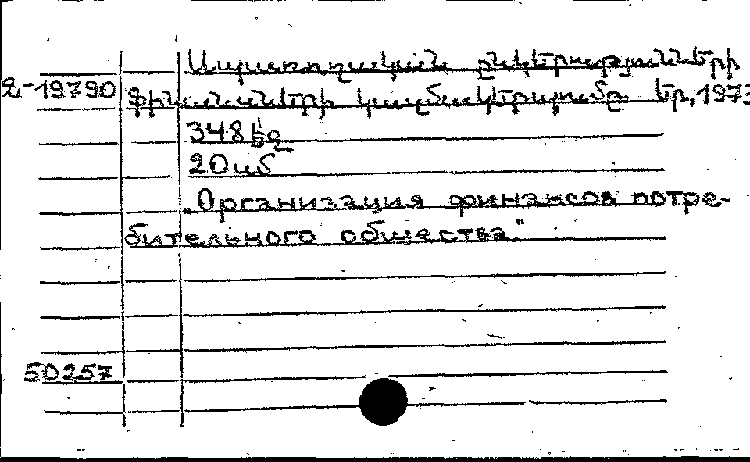 Սպառողական ընկերությունների
Ձ-19790 ֆինանսների կազմակերպումը Եր.,1973
348 էջ
20սմ
„Организация финансов потре-
бительного общества"
50257